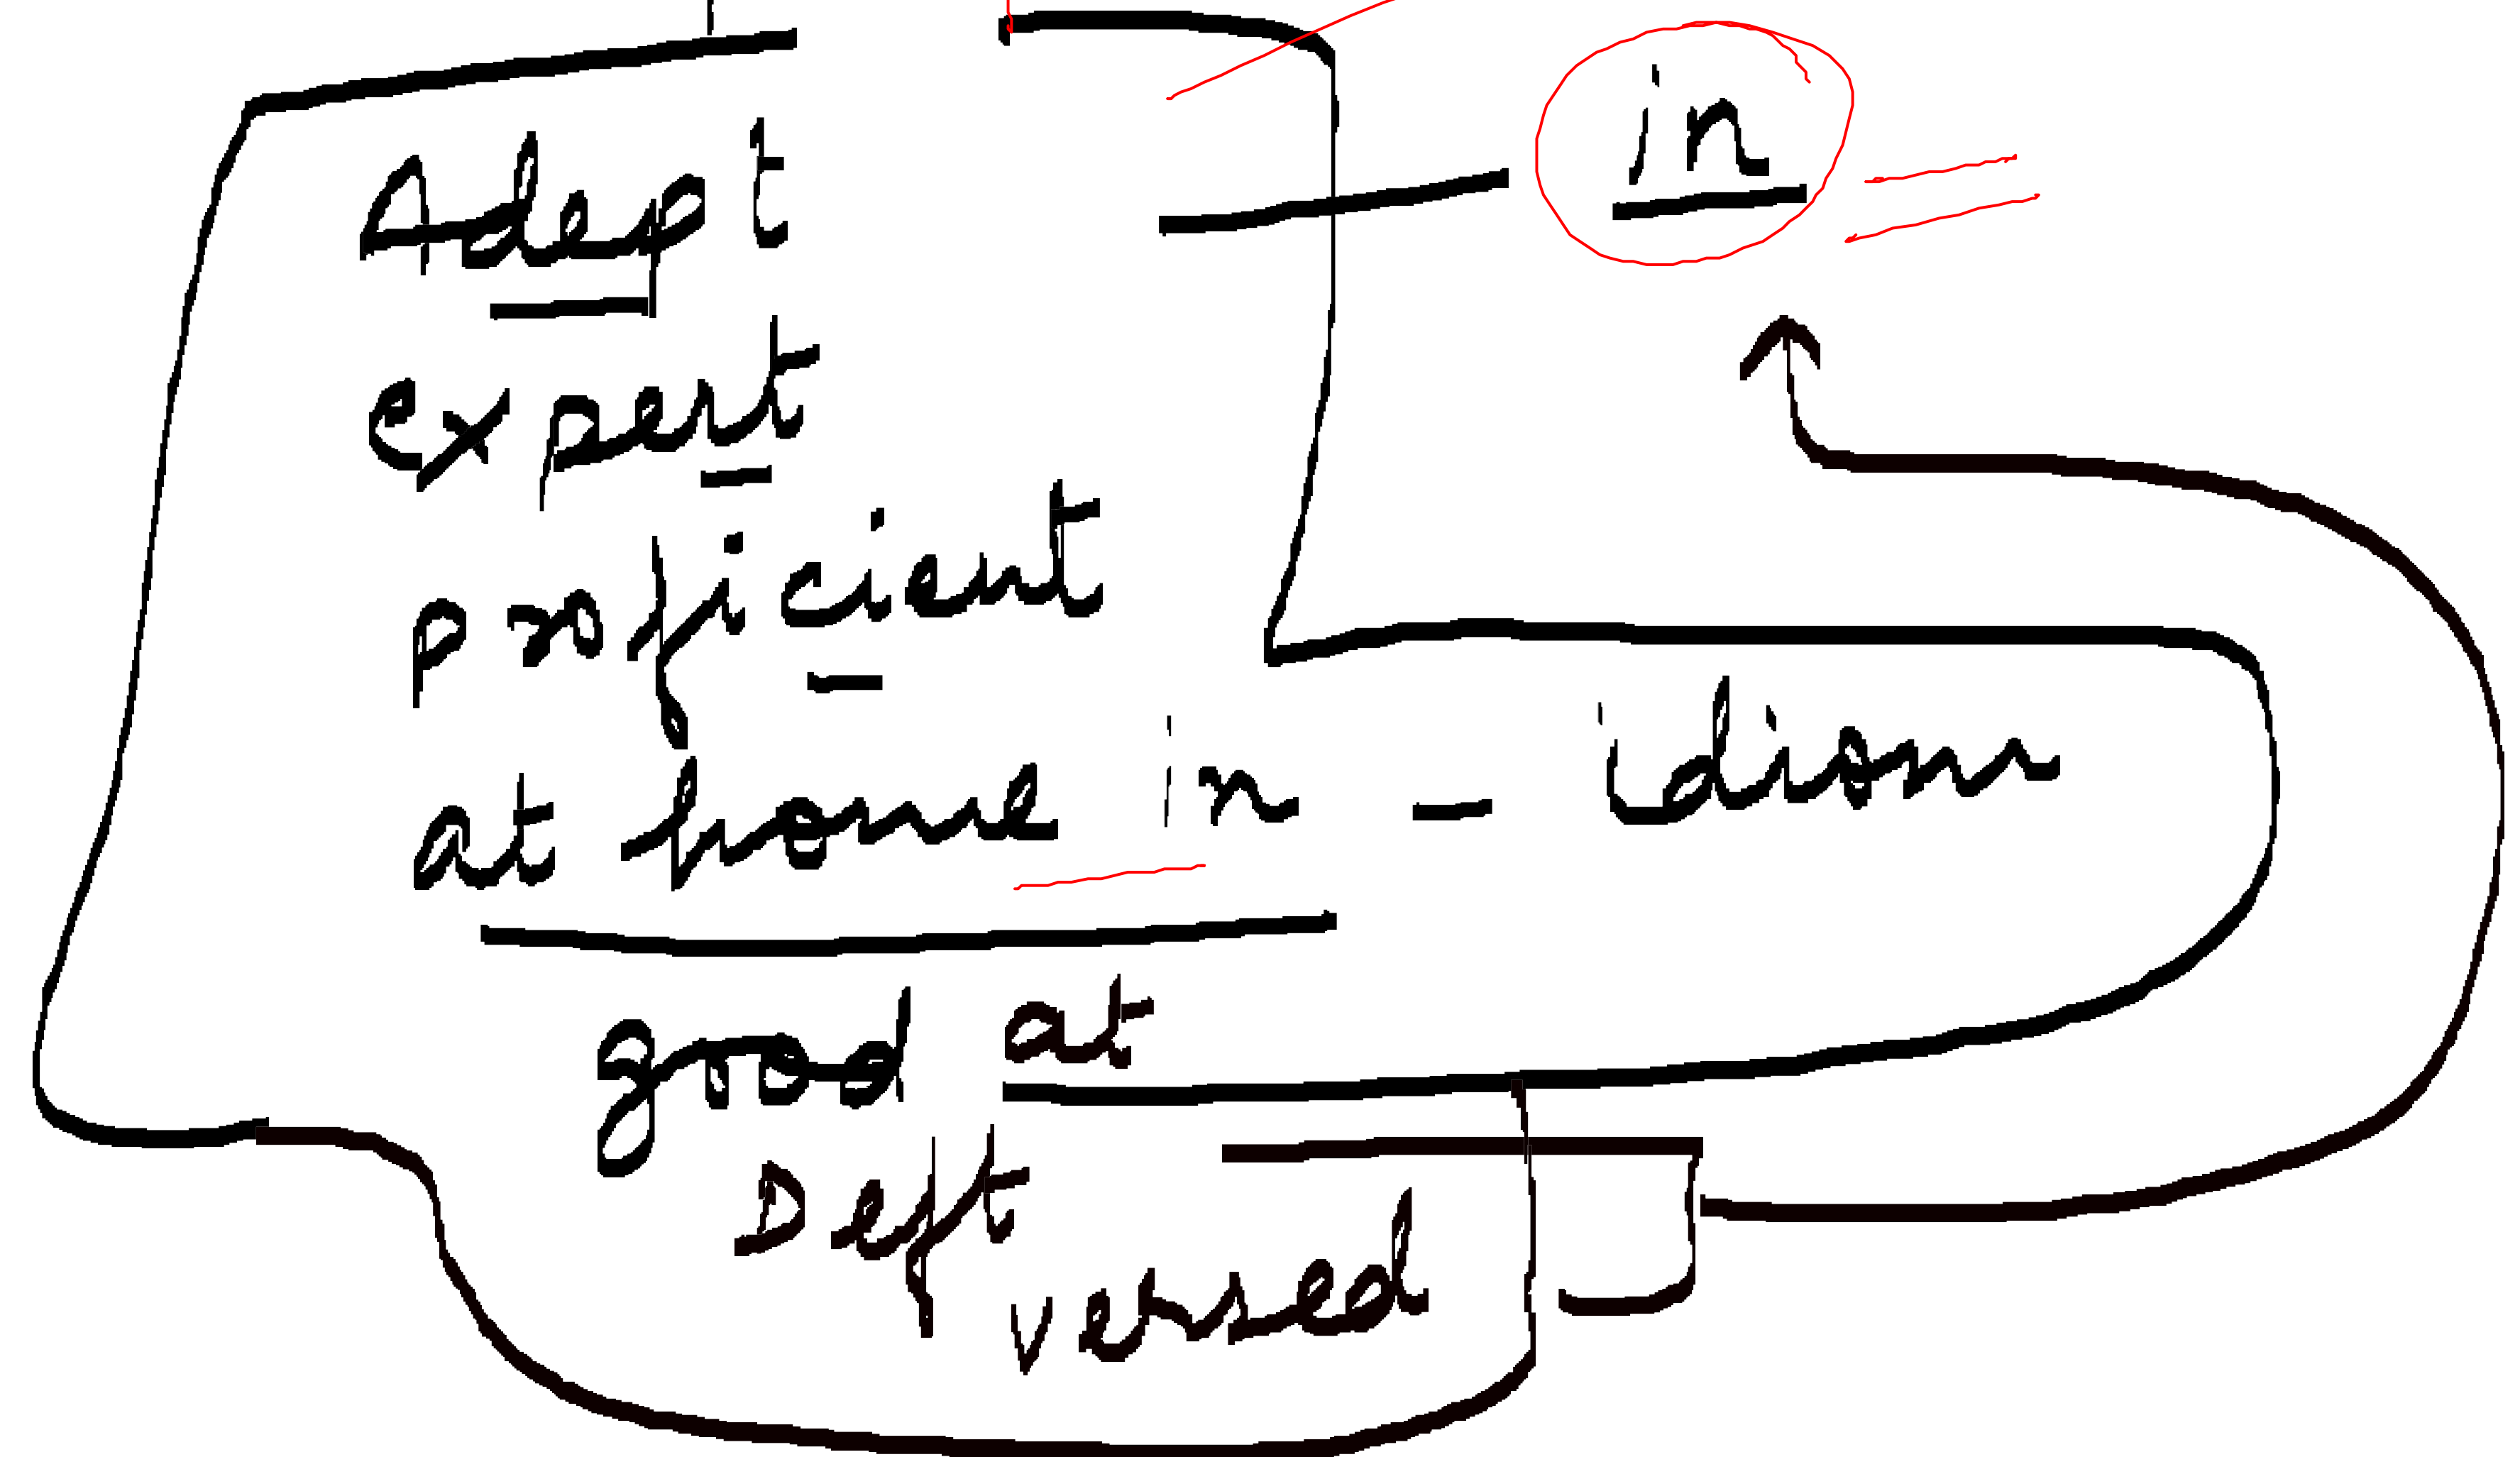 Adept — in
expert
proficient
at home in - idiom
good at
Deft
versed